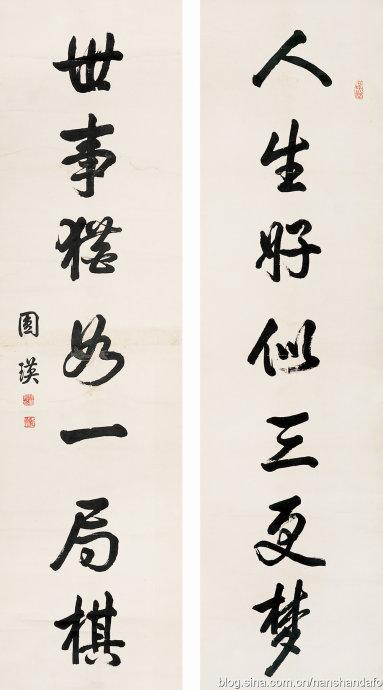 人生好似三更梦
世事犹如一局棋
圆瑛
blog.sina.com.cn/nanshandafo